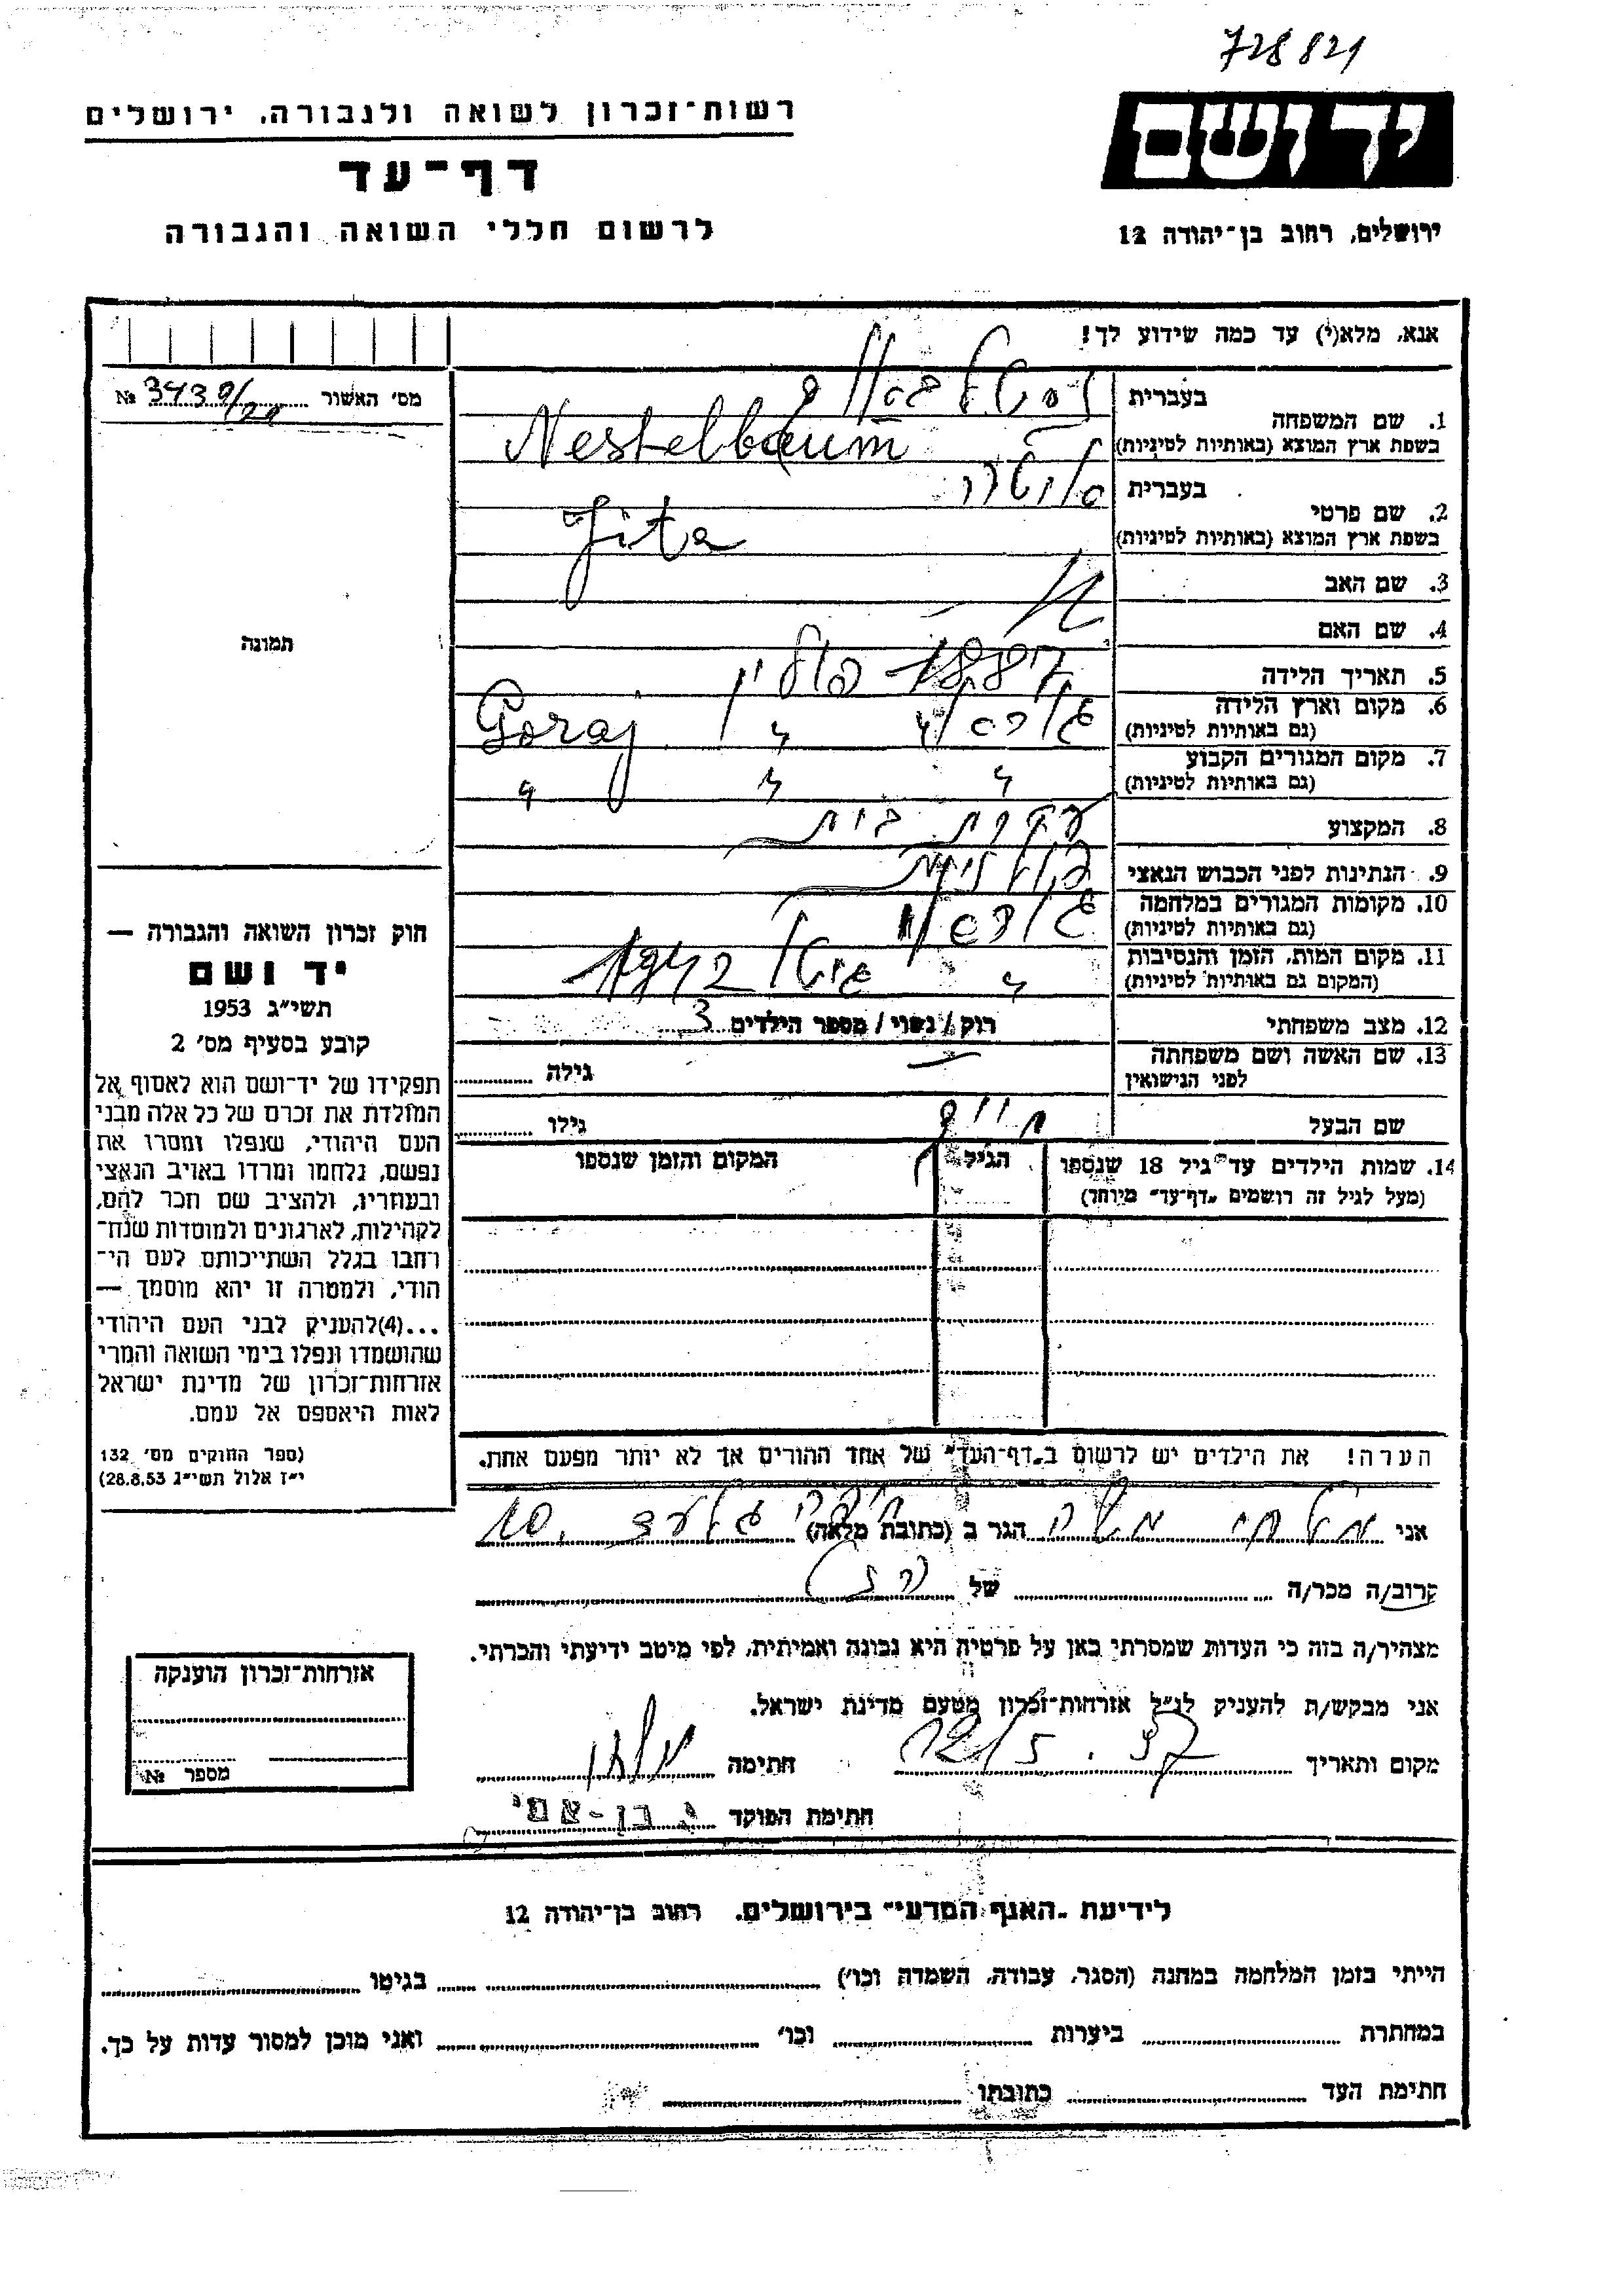 728821
רשות־זכרון לשואה ולגבורה, ירושלים
יד ושם
דף־עד
לרשום חללי השואה והגבורה
ירושלים, רחוב בן־יהודה 12
אנא, מלא(י) עד כמה שידוע לך!
מס' האשור № 3439/20
1. שם המשפחה בעברית
בשפת ארץ המוצא (באותיות לטיניות) Nestelbaum
2. שם פרטי בעברית
בשפת ארץ המוצא (באותיות לטיניות) Jita
3. שם האב
4. שם האם
תמונה
5. תאריך הלידה 1887 פולין
6. מקום וארץ הלידה
(גם באותיות לטיניות) Goraj
7. מקום המגורים הקבוע
(גם באותיות לטיניות) " " "
8. המקצוע עקרת בית
9. הנתינות לפני הכבוש הנאצי פולנית
10. מקומות המגורים במלחמה
(גם באותיות לטיניות)
11. מקום המות, הזמן והנסיבות
(המקום גם באותיות לטיניות)
12. מצב משפחתי רוק/נשוי/מספר הילדים 3
13. שם האשה ושם משפחתה
לפני הנישואין גילה
שם הבעל חיים גילו
14. שמות הילדים עד גיל 18 שנספו הגיל המקום והזמן שנספו
(מעל לגיל זה רושמים "דף־עד" מיוחד)
חוק זכרון השואה והגבורה —
יד ושם
תשי"ג 1953
קובע בסעיף מס' 2
תפקידו של יד־ושם הוא לאסוף אל
המולדת את זכרם של כל אלה מבני
העם היהודי, שנפלו ומסרו את
נפשם, נלחמו ומרדו באויב הנאצי
ובעוזריו, ולהציב שם וזכר להם,
לקהילות, לארגונים ולמוסדות שנח־
רבו בגלל השתייכותם לעם הי־
הודי, ולמטרה זו יהא מוסמך —
...(4)להעניק לבני העם היהודי
שהושמדו ונפלו בימי השואה והמרי
אזרחות־זכרון של מדינת ישראל
לאות היאספם אל עמם.
(ספר החוקים מס' 132
י"ז אלול תשי"ג 28.8.53)
הערה! את הילדים יש לרשום ב"דף־העד" של אחד ההורים אך לא יותר מפעם אחת.
אני הגר ב (כתובת מלאה)
קרוב/ה מכר/ה של
מצהיר/ה בזה כי העדות שמסרתי כאן על פרטיה היא נכונה ואמיתית, לפי מיטב ידיעתי והכרתי.
אני מבקש/ת להעניק לנ"ל אזרחות־זכרון מטעם מדינת ישראל.
מקום ותאריך 12/5.57 חתימה
חתימת הפוקד י. בן-עמי
אזרחות־זכרון הוענקה
מספר №
לידיעת "האגף המדעי" בירושלים, רחוב בן־יהודה 12
הייתי בזמן המלחמה במחנה (הסגר, עבודה, השמדה וכו') בגיטו
במחתרת ביערות וכו' ואני מוכן למסור עדות על כך.
חתימת העד כתובתו